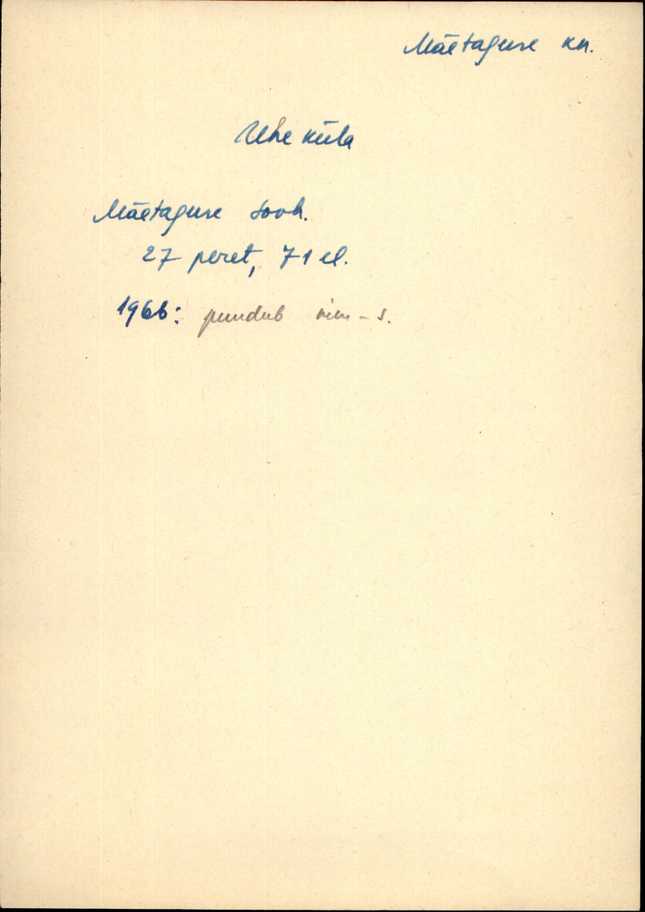 Mäetaguse kn.
Uhe küla
Mäetaguse sovh.
27 peret, 71 el.
1966: puudub nim-s.